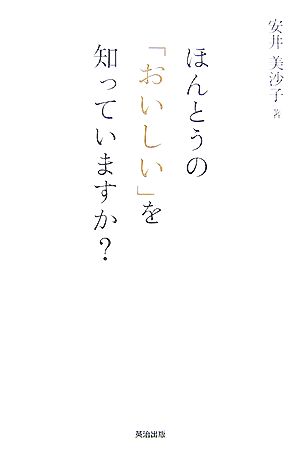 安井 美沙子 著
ほんとうの
「おいしい」を
知っていますか？
英治出版